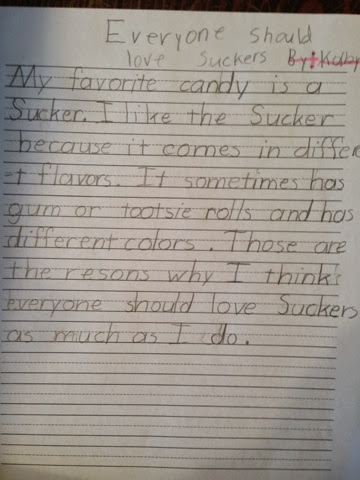 Everyone should
love Suckers By: Kolby
My favorite candy is a
Sucker. I like the Sucker
because it comes in differe
-t flavors. It sometimes has
gum or tootsie rolls and has
different colors. Those are
the resons why I think
everyone should love Suckers
as much as I do.